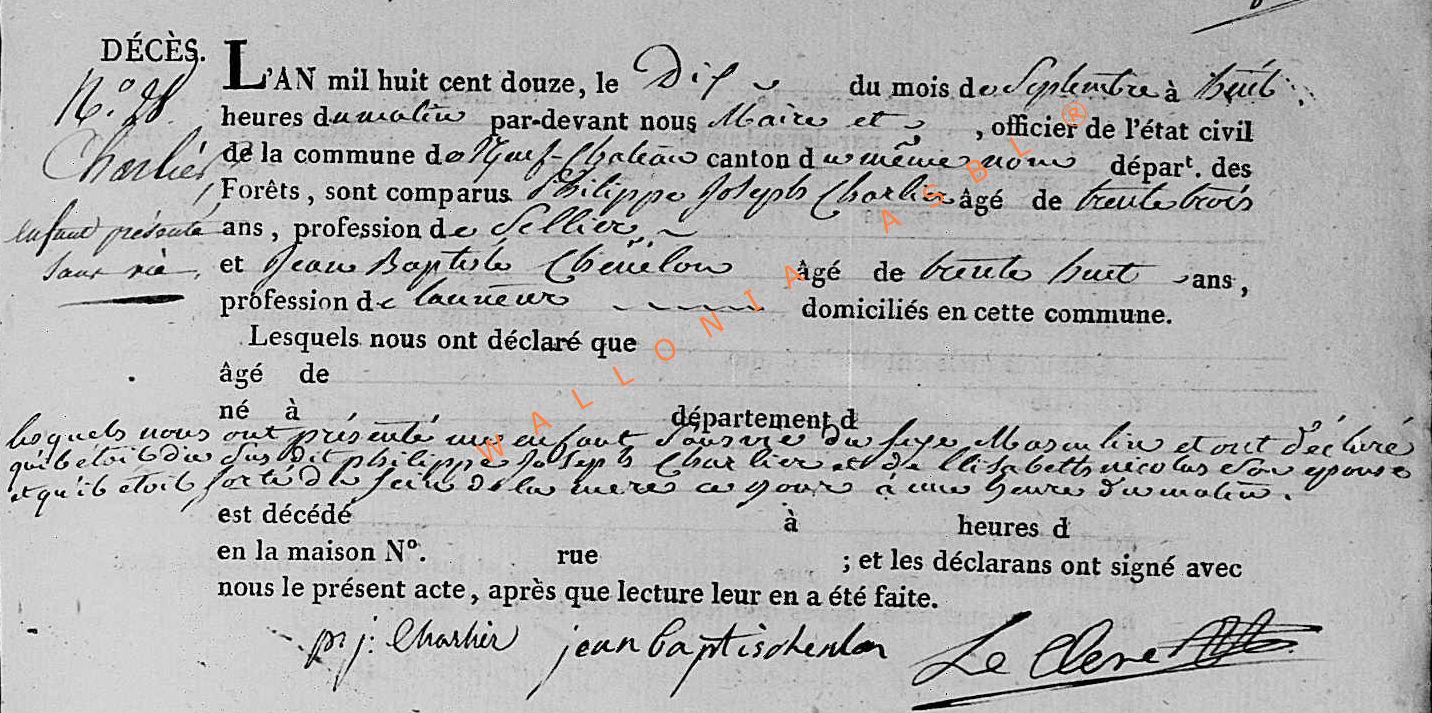 DÉCÈS.
N.º 28.
Charlier
enfant présenté
sans vie,
L'AN mil huit cent douze, le Dix du mois de Septembre à huit
heures du matin par-devant nous Maire et , officier de l'état civil
de la commune de Neuf-Chateau canton du même nom départ. des
Forêts, sont comparus Philippe Joseph Charlier âgé de trente trois
ans, profession de Sellier
et Jean Baptiste Chenélon âgé de trente huit ans,
profession de tanneur domiciliés en cette commune.
Lesquels nous ont déclaré que
âgé de
né à département d
lesquels nous ont présenté un enfant sans vie du sexe Masculin et ont déclaré
qu'il étoit du Susdit philippe Joseph Charlier et de Elisabeth nicolas son epouse
et qu'il etoit sorti du sein de la mere ce jour à une heure du matin.
est décédé à heures d
en la maison Nº. rue ; et les déclarans ont signé avec
nous le présent acte, après que lecture leur en a été faite.
ph j: Charlier jean baptis chenlon Le Clerc
WALLONIA ASBL ®